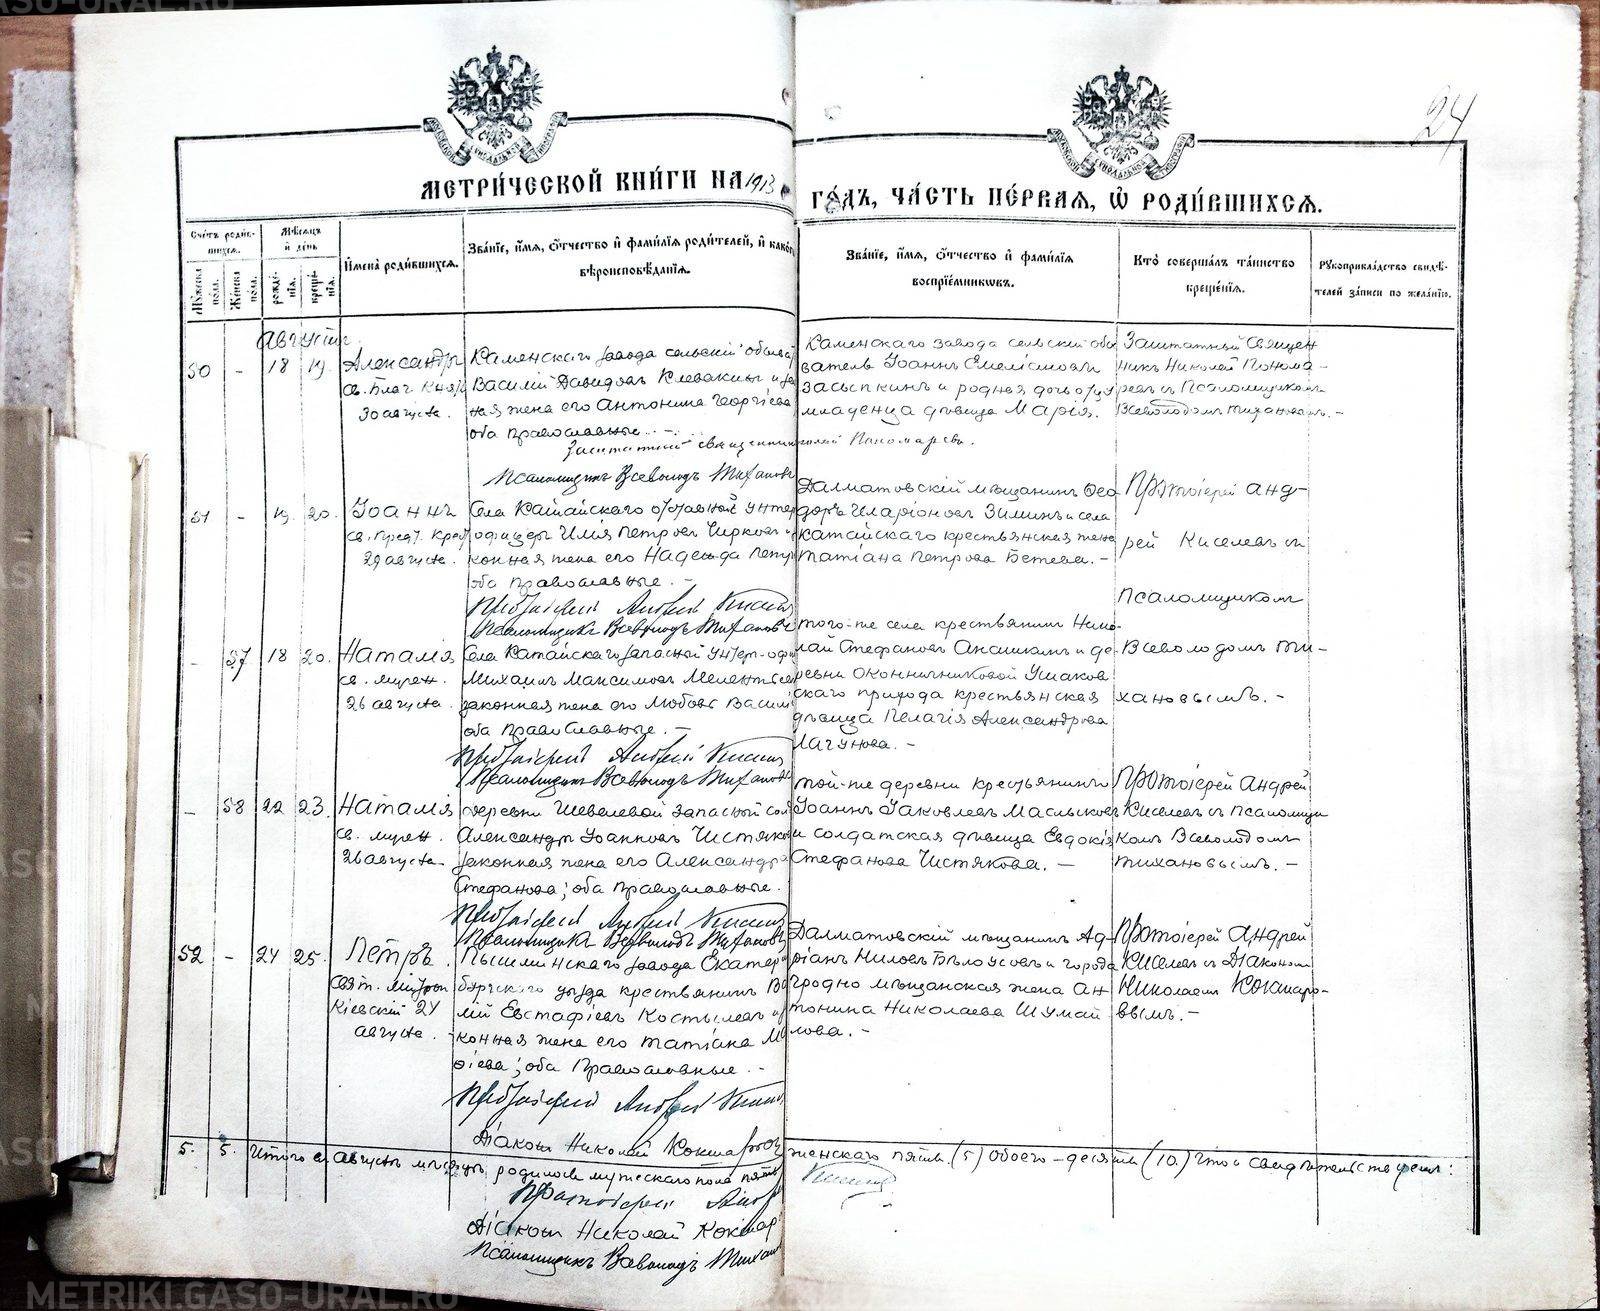 24
МЕТРИ́ЧЕСКОЙ КНИ́ГИ НА 1913
ГО́ДЪ, ЧА́СТЬ ПЕ́РВАЯ, Ѡ҆ РОДИ́ВШИХСЯ.
Сче́тъ роди́вшихся.
Му́жеска по́ла.
Же́нска по́ла.
Мѣ́сяцъ и҆ де́нь
рожде́нїя.
креще́нїя.
И҆мена̀ роди́вшихся.
Зва́нїе, и҆́мя, ѻ҆́тчество и҆ фами́лїя роди́телей, и҆ како́го
вѣроисповѣ́данїя.
Зва́нїе, и҆́мя, ѻ҆́тчество и҆ фами́лїя
воспрїе́мникѡвъ.
Кто̀ соверша́лъ та́инство
креще́нїя.
Рꙋкоприкла́дство свидѣ́-
телей за́писи по жела́нїю.
Августъ
50 - 18 19.
Александръ
св. благ. княз
30 августа.
Каменскаго завода сельскій обыва
Василій Давидовъ Клевакинъ и за
ная жена его Антонина Георгіева
оба православные. -
Заштатный священник
Псаломщикъ Всеволодъ Тиханов
Каменскаго завода сельскій обы
ватель Іоаннъ Емеліановъ
Засыпкинъ и родная дочь отца
младенца дѣвица Марія.
колай Пономаревъ.
Заштатный Священ
никъ Николай Понома-
ревъ съ Псаломщикомъ
Всеволодомъ Тихановымъ. -
51 - 19. 20.
Іоаннъ
св. пред. Крест
29 августа.
Села Катайскаго отставной унтер
офицеръ Илія Петровъ Чирковъ и
конная жена его Надежда Петр
оба православные. -
Протоіерей Андрей Кисел
Псаломщикъ Всеволодъ Тиханов
Далматовскій мѣщанинъ Ѳео
доръ Иларіоновъ Зиминъ и села
Катайскаго крестьянская жена
Татіана Петрова Бетева. -
Протоіерей Анд-
рей Киселевъ съ
Псаломщикомъ
Всеволодомъ Ти-
хановымъ. -
- 57 18 20.
Наталія
св. мучен.
26 августа.
Села Катайскаго запасный унтер-офи
Михаилъ Максимовъ Мелентьев
законная жена его Любовь Васил
оба православные. -
Протоіерей Андрей Кисел
Псаломщикъ Всеволодъ Тиханов
того-же села крестьянинъ Нико
лай Стефановъ и де-
ревни Оконничниковой Ушаков
скаго прихода крестьянская
дѣвица Пелагія Александрова
Лагунова. -
- 58 22 23.
Наталія
св. мучен.
26 августа.
деревни Шевелевой запасный сол
Александръ Іоанновъ Чистяков
законная жена его Александра
Стефанова; оба православные.
Протоіерей Андрей Кисел
Псаломщикъ Всеволодъ Тиханов
той-же деревни крестьянинъ
Іоаннъ Іаковлевъ Маслыков
и солдатская дѣвица Евдокія
Стефанова Чистякова. -
Протоіерей Андрей
Киселевъ съ Псаломщи
комъ Всеволодомъ
Тихановымъ. -
52 - 24 25.
Петръ.
Свят. Митроп
Кіевскій 24
августа.
Пышминскаго завода Екатери
бургскаго уѣзда крестьянинъ Ва
лій Евстафіевъ Костылевъ и з
конная жена его Татіана М
ѳіева; оба Православные. -
Протоіерей Андрей Кисел
Діаконъ Николай Кокшаров
Далматовскій мѣщанинъ Ад-
ріанъ Ниловъ Бѣлоусовъ и города
Гродно мѣщанская жена Ан-
тонина Николаева Шумай
лова. -
Протоіерей Андрей
Киселевъ съ Діакономъ
Николаемъ Кокшаро-
вымъ. -
5. 5. Итого въ августѣ мѣсяцѣ родилось мужескаго пола пять
женскаго пять (5) обоего - десять (10.) Что и свидѣтельствуемъ:
Протоіерей Андр
Кисел
Діаконъ Николай Кокшар
Псаломщикъ Всеволодъ Тихан
METRIKI.GASO-URAL.RU